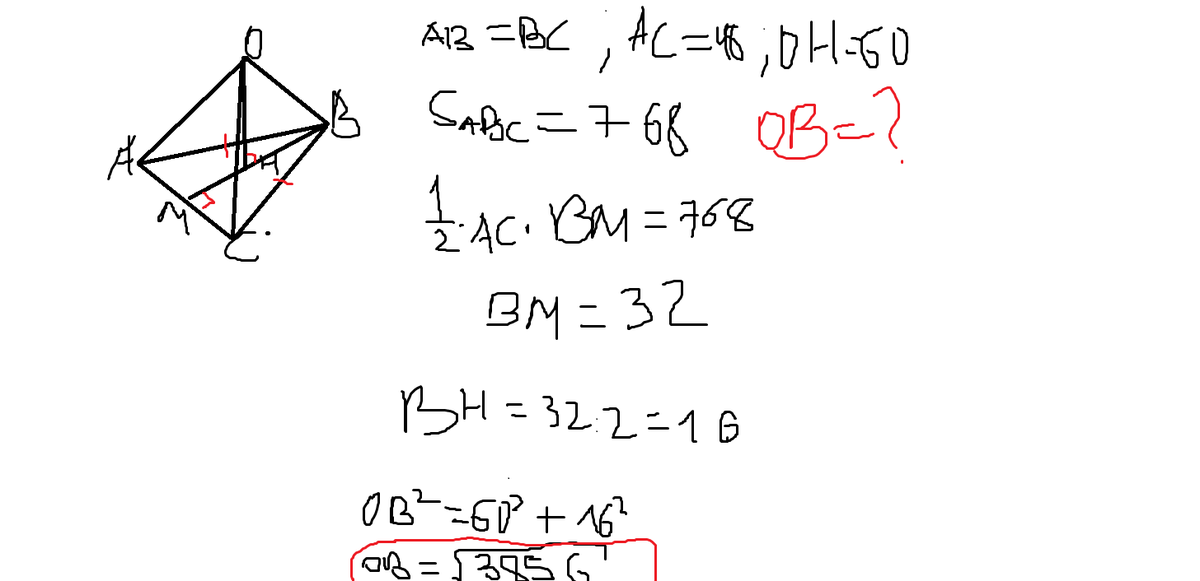 O
B
A
H
M
C.
AB = BC , AC = 48 ; OH = 60
S_ABC = 768 OB = ?
1/2 · AC · BM = 768
BM = 32
BH = 32:2 = 16
OB² = 60² + 16²
OB = √3856